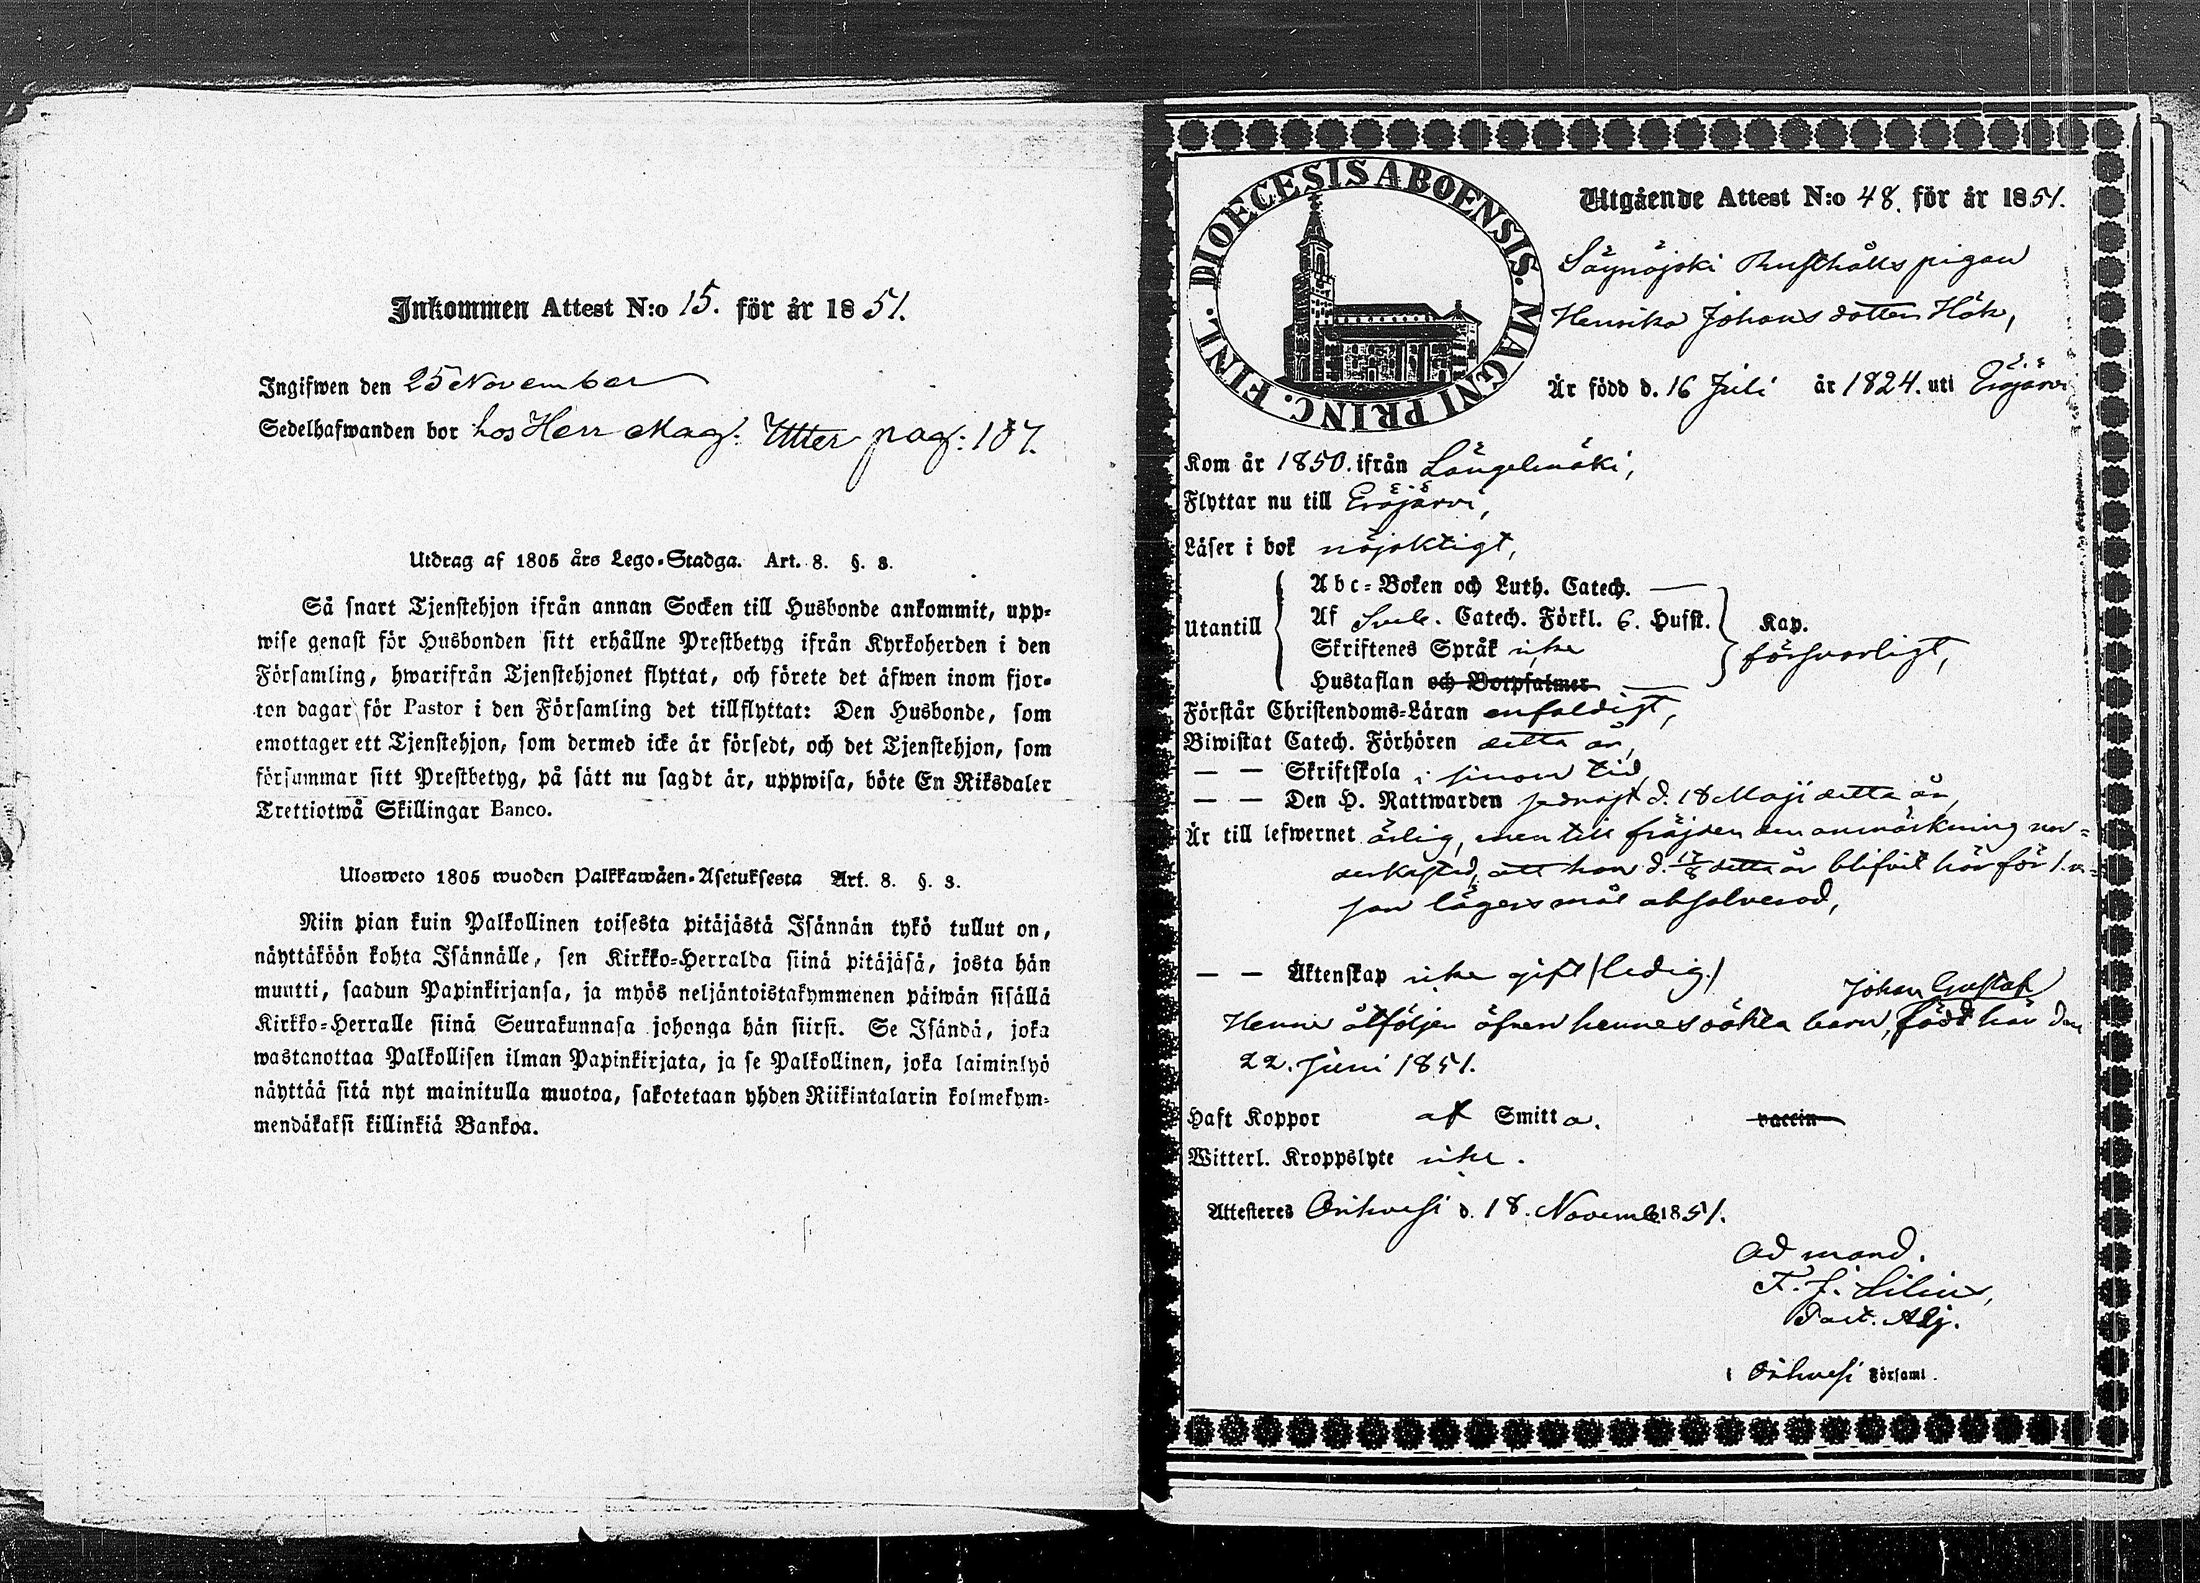 Inkommen Attest N:o 15. för år 1851.
Ingifwen den 25 November
Sedelhafwanden bor hos Herr Mag: Utter pag: 107.
Utdrag af 1805 års Lego-Stadga. Art. 8. §. 3.
Så snart Tjenstehjon ifrån annan Socken till Husbonde ankommit, upp-
wise genast för Husbonden sitt erhållne Prestbetyg ifrån Kyrkoherden i den
Församling, hwarifrån Tjenstehjonet flyttat, och förete det äfwen inom fjor-
ton dagar för Pastor i den Församling det tillflyttat: Den Husbonde, som
emottager ett Tjenstehjon, som dermed icke är försedt, och det Tjenstehjon, som
försummar sitt Prestbetyg, på sätt nu sagdt är, uppwisa, böte En Riksdaler
Trettiotwå Skillingar Banco.
Ulosweto 1805 wuoden Palkkawäen-Asetuksesta Art. 8. §. 3.
Niin pian kuin Palkollinen toisesta pitäjästä Isännän tykö tullut on,
näyttäköön kohta Isännälle, sen Kirkko-Herralda siinä pitäjäsä, josta hän
muutti, saadun Papinkirjansa, ja myös neljäntoistakymmenen päiwän sisällä
Kirkko-Herralle siinä Seurakunnasa johonga hän siirsi. Se Isändä, joka
wastanottaa Palkollisen ilman Papinkirjata, ja se Palkollinen, joka laiminlyö
näyttää sitä nyt mainitulla muotoa, sakotetaan yhden Riikintalarin kolmekym-
mendäkaksi killinkiä Bankoa.
DIOECESIS ABOENSIS. MAGNI PRINC. FINL.
Utgående Attest N:o 48. för år 1851.
Säynäjoki Rusthålls pigan
Henrika Johans dotter Hök,
Är född d. 16 Juli år 1824. uti Eräjärvi
Kom år 1850. ifrån Längelmäki,
Flyttar nu till Eräjärvi,
Läser i bok nöjaktigt,
Utantill
Abc-Boken och Luth. Catech. —
Af Sveb. Catech. Förkl. 6. Husst.
Skriftenes Språk icke
Hustaflan och Botpsalmer —
Kap.
försvarligt,
Förstår Christendoms-Läran enfaldigt,
Biwistat Catech. Förhören detta år,
— — Skriftskola i sinom tid,
— — Den H. Nattwarden sednast d. 18 Maji detta år,
Är till lefwernet ärlig, men till fräjden den anmärkning un-
derkastad, att hon d. 17/8 detta år blifvit här för 1:a
lägersmål absolverad,
— — Äktenskap icke gift (ledig.)
Johan Gustaf
Henne åtföljer äfven hennes oäkta barn, född här den
22. Juni 1851.
Haft Koppor af Smitta. vaccin
Witterl. Kroppslyte icke.
Attesteres Orihvesi d. 18. Novemb. 1851.
Ad mand.
F. J. Lilius,
Past. Adj.
i Orihvesi Församl.